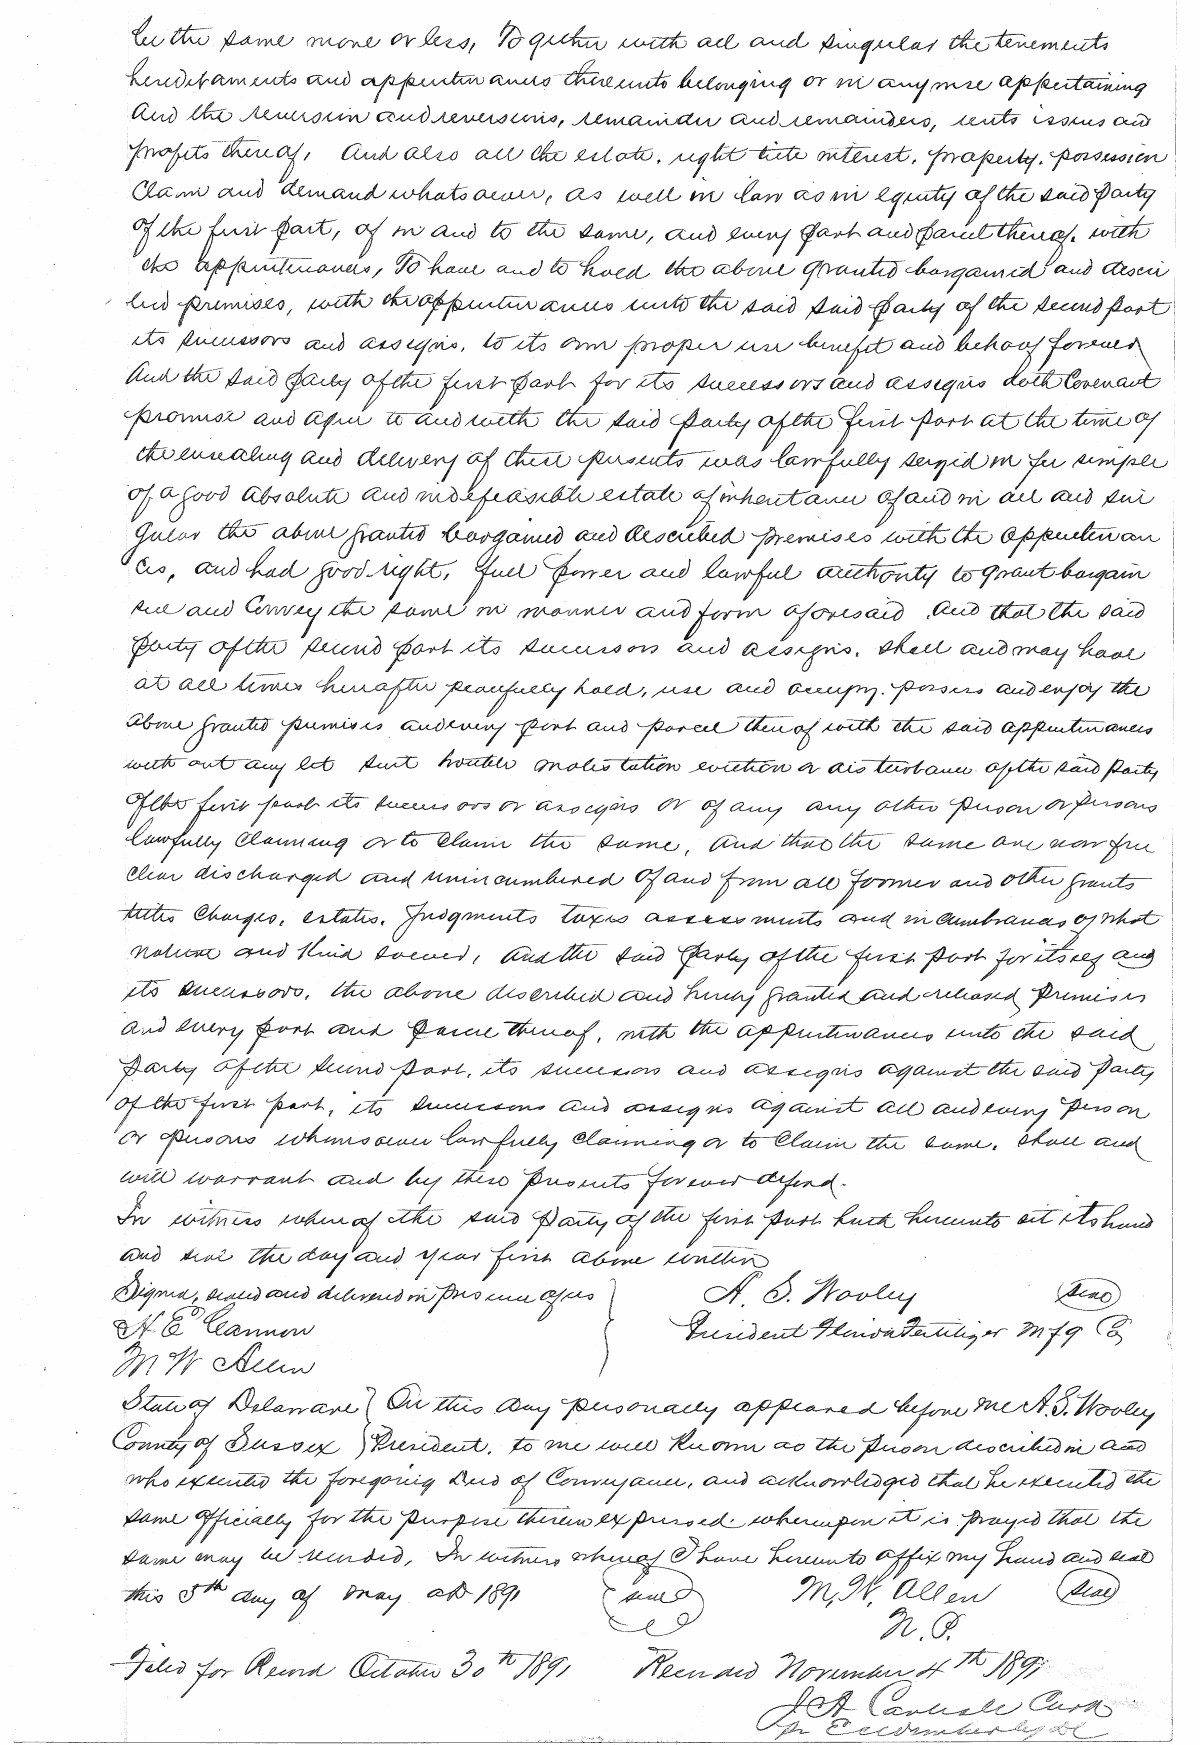 be the same more or less, Together with all and singular the tenements
hereditaments and appurtenances thereunto belonging or in anywise appertaining
And the reversion and reversions, remainder and remainders, rents issues and
profits thereof, And also all the estate, right title interest, property, possession
Claim and demand whatsoever, as well in law as in equity of the said party
of the first part, of in and to the same, and every part and parcel thereof, with
the appurtenances, To have and to hold the above granted bargained and descri
bed premises, with the appurtenances unto the said said Party of the second part
its successors and assigns, to its own proper use benefit and behoof forever
And the said party of the first part for its successors and assigns doth Covenant
promise and agree to and with the said party of the first part at the time of
the ensealing and delivery of these presents was lawfully seized in fee simple
of a good absolute and indefeasible estate of inheritance of and in all and sin
gular the above granted bargained and described premises with the appurtenan
ces, and had good right, full power and lawful authority to grant bargain
sell and Convey the same in manner and form aforesaid. And that the said
party of the second part its successors and assigns, shall and may have
at all times hereafter peacefully hold, use and occupy, possess and enjoy the
above granted premises and every part and parcel thereof with the said appurtenances
with out any let suit trouble molestation eviction or disturbance of the said party
of the first part its successors or assigns or of any any other person or persons
lawfully claiming or to claim the same, And that the same are now free
clear discharged and unincumbered of and from all former and other grants
titles Charges, estates, Judgments taxes assessments and incumbrances of what
nature and kind soever, And the said party of the first part for itself and
its successors, the above described and hereby granted and released premises
and every part and parcel thereof, with the appurtenances unto the said
party of the second part, its successors and assigns against the said party
of the first part, its successors and assigns against all and every person
or persons whomsoever lawfully claiming or to Claim the same, shall and
will warrant and by these presents forever defend.
In witness whereof the said party of the first part hath hereunto set its hand
and seal the day and year first above written
Signed, sealed and delivered in presence of us A. S. Wooley (seal)
H E Cannon President Florida Fertilizer Mfg Co
M W Allen
State of Delaware } On this day personally appeared before me A. S. Wooley
County of Sussex } President, to me well known as the person described in and
who executed the foregoing Deed of Conveyance, and acknowledged that he executed the
same officially for the purpose therein expressed. whereupon it is prayed that the
same may be recorded, In witness whereof I have hereunto affix my hand and seal
this 5th day of May AD 1891 (seal) M. W. Allen (seal)
N. P.
Filed for Record October 30th 1891 Recorded November 4th 1891
J A Carlisle Clerk